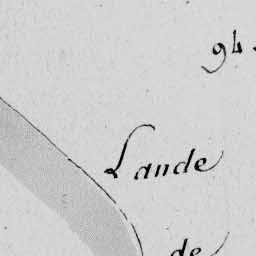 94.
Lande
de